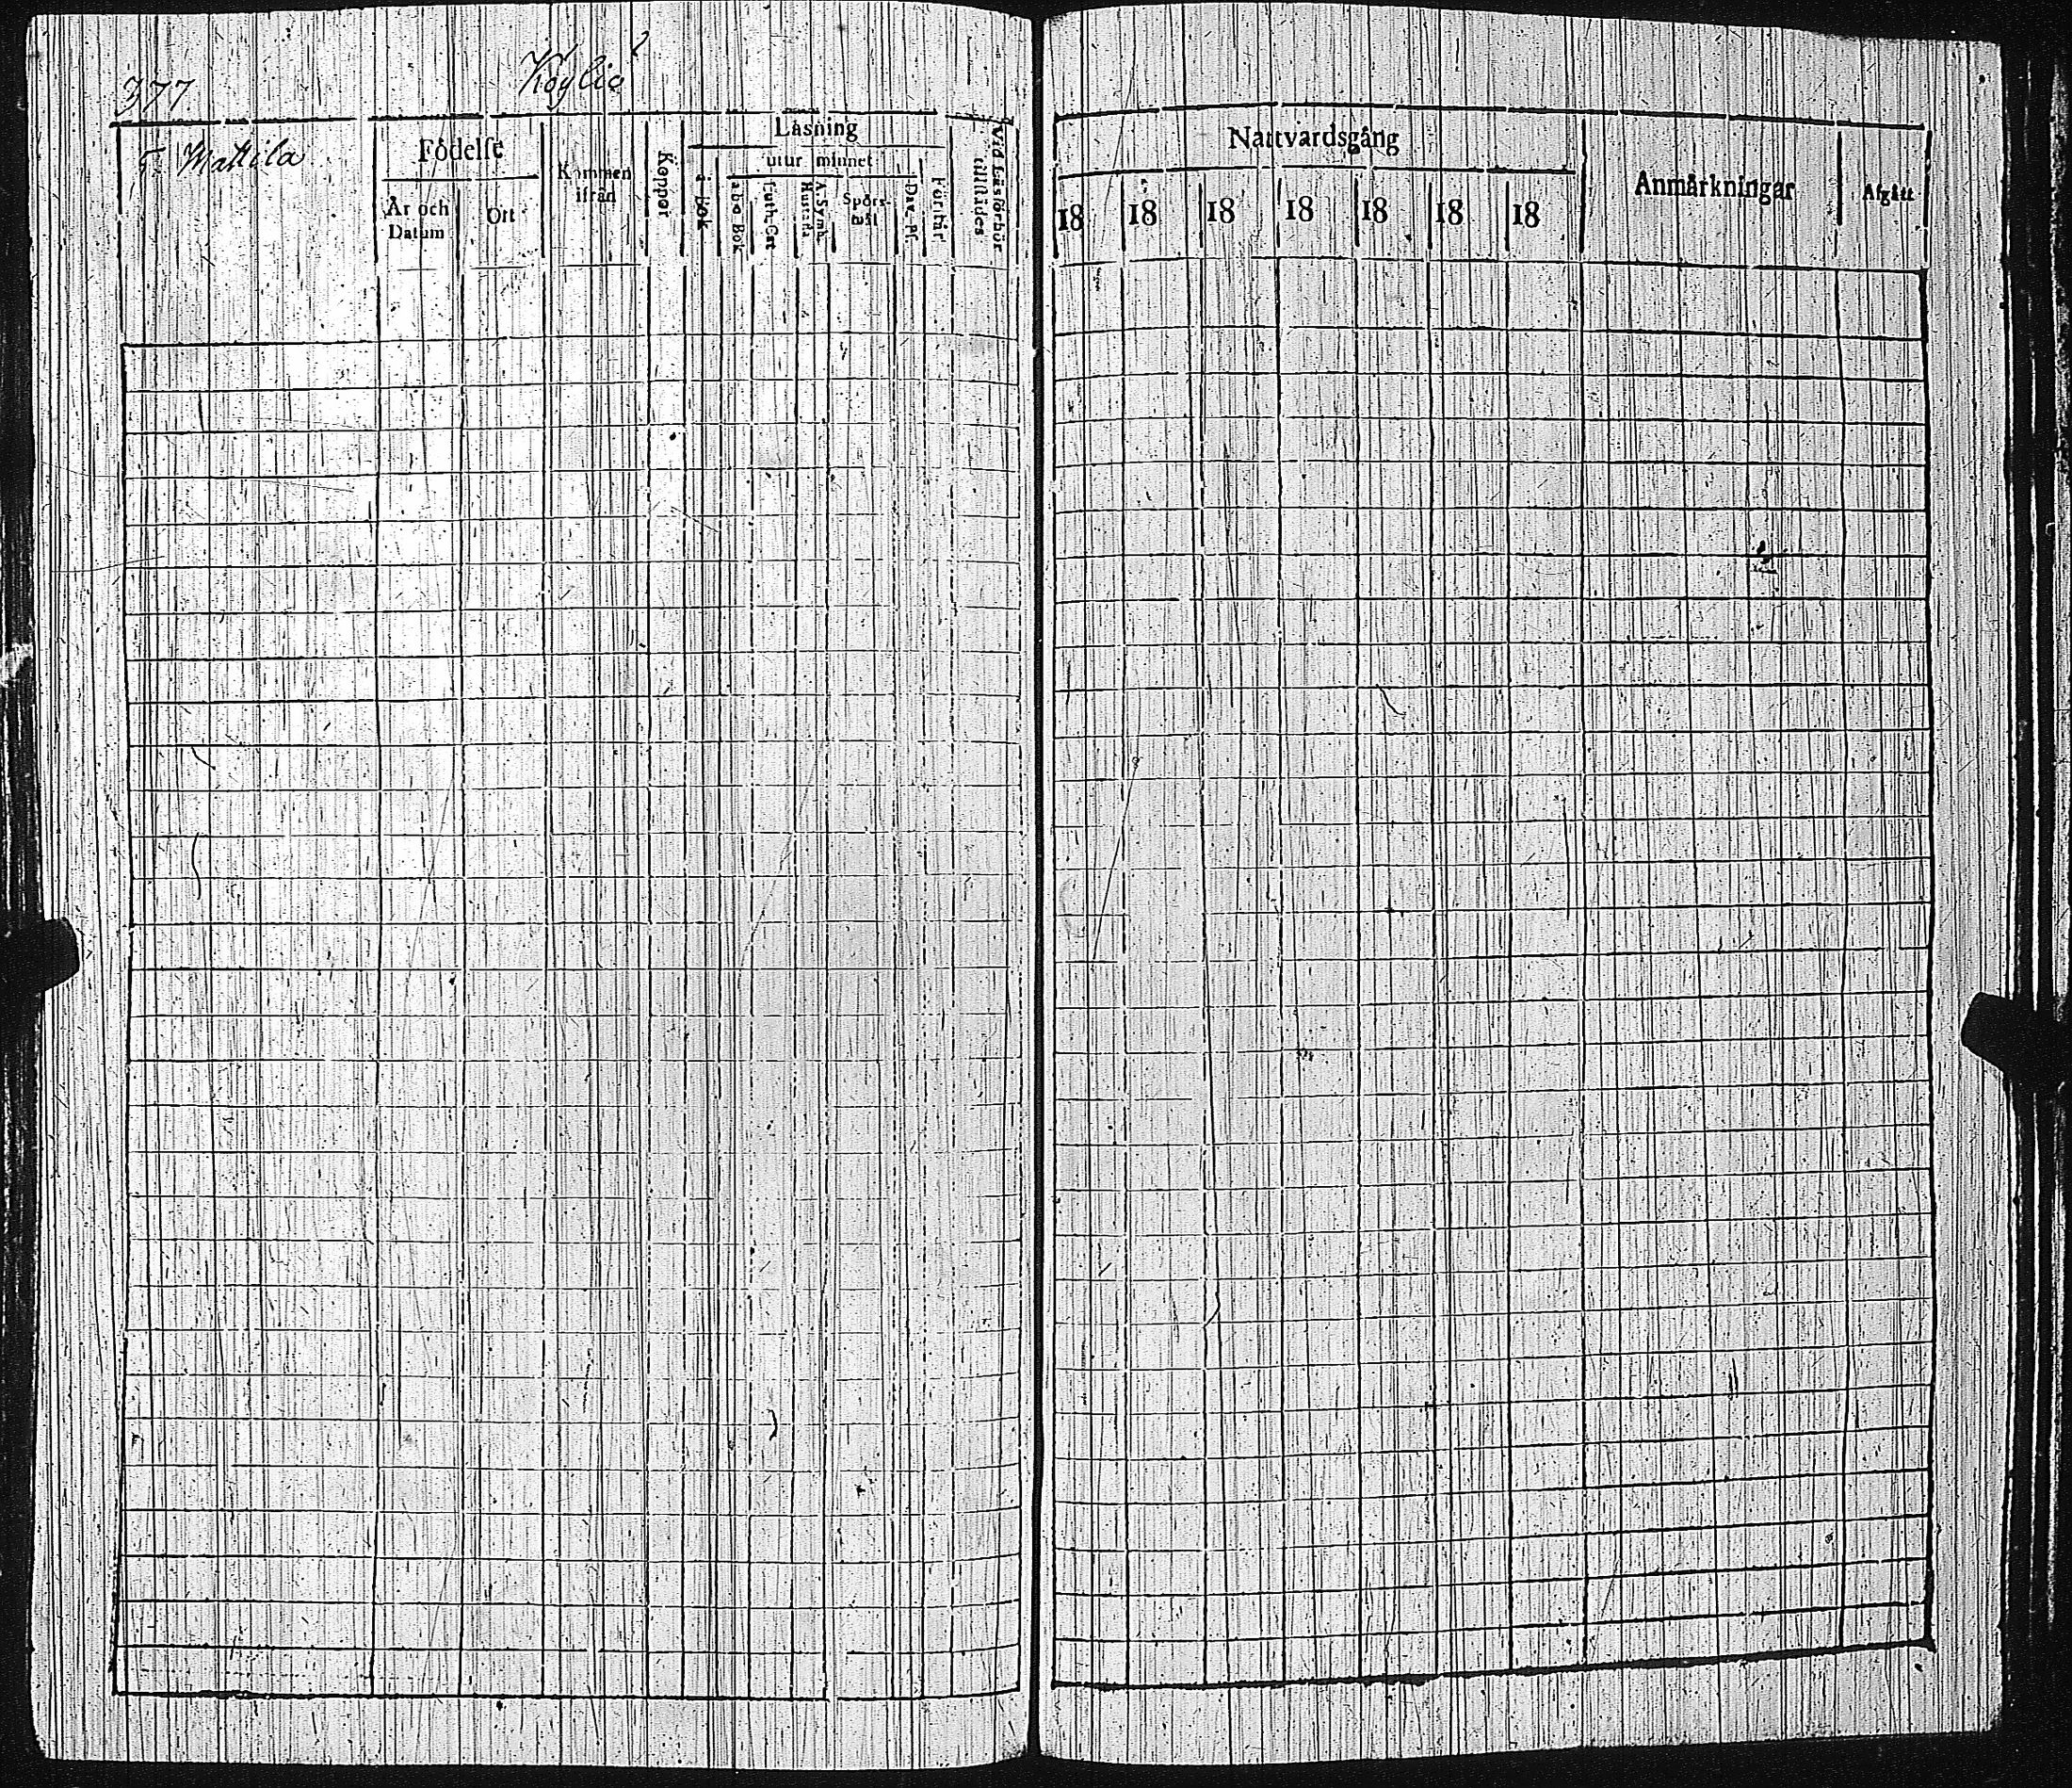 377 Köyliö
5. Mattila
Födelse
År och Datum
Ort
Kommen ifrån
Koppor
Läsning
i Bok
utur minnet
a b c Bok
Luth. Cat
A. Symb. Hustafla
Spörsmål
Dav. Ps.
Förstår
Vid Läsförhör tillstädes
Nattvardsgång
18 18 18 18 18 18 18
Anmärkningar
Afgått